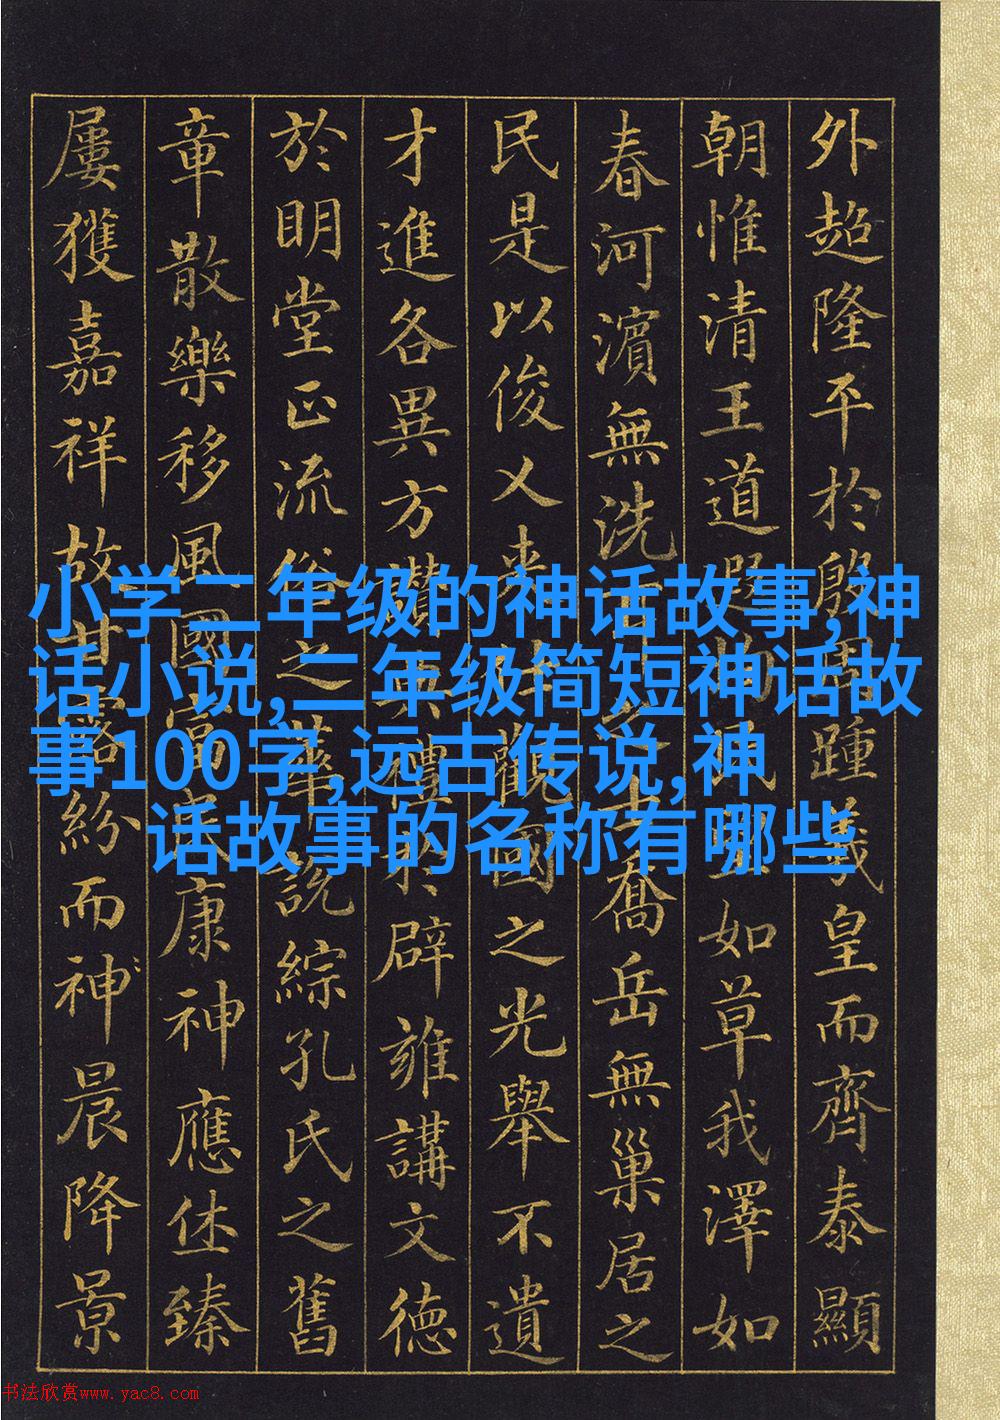 外超隆平於殷周踵羲皇而齊泰顯
朝惟清王道遐民望如草我澤如
春河濱無洗耳之士喬岳無巢居之
民是以俊乂來仕觀國之光舉不遺
才進各異方讚典禮於辟雍講文德
於明堂正流俗之華說綜孔氏之舊
章散樂移風國富民康神應休臻
屢獲嘉祥故甘露紛而神晨降景
小学二年级的神话故事,神
话小说,二年级简短神话故
事100字,远古传说,神
话故事的名称有哪些
书法欣赏www.yac8.com